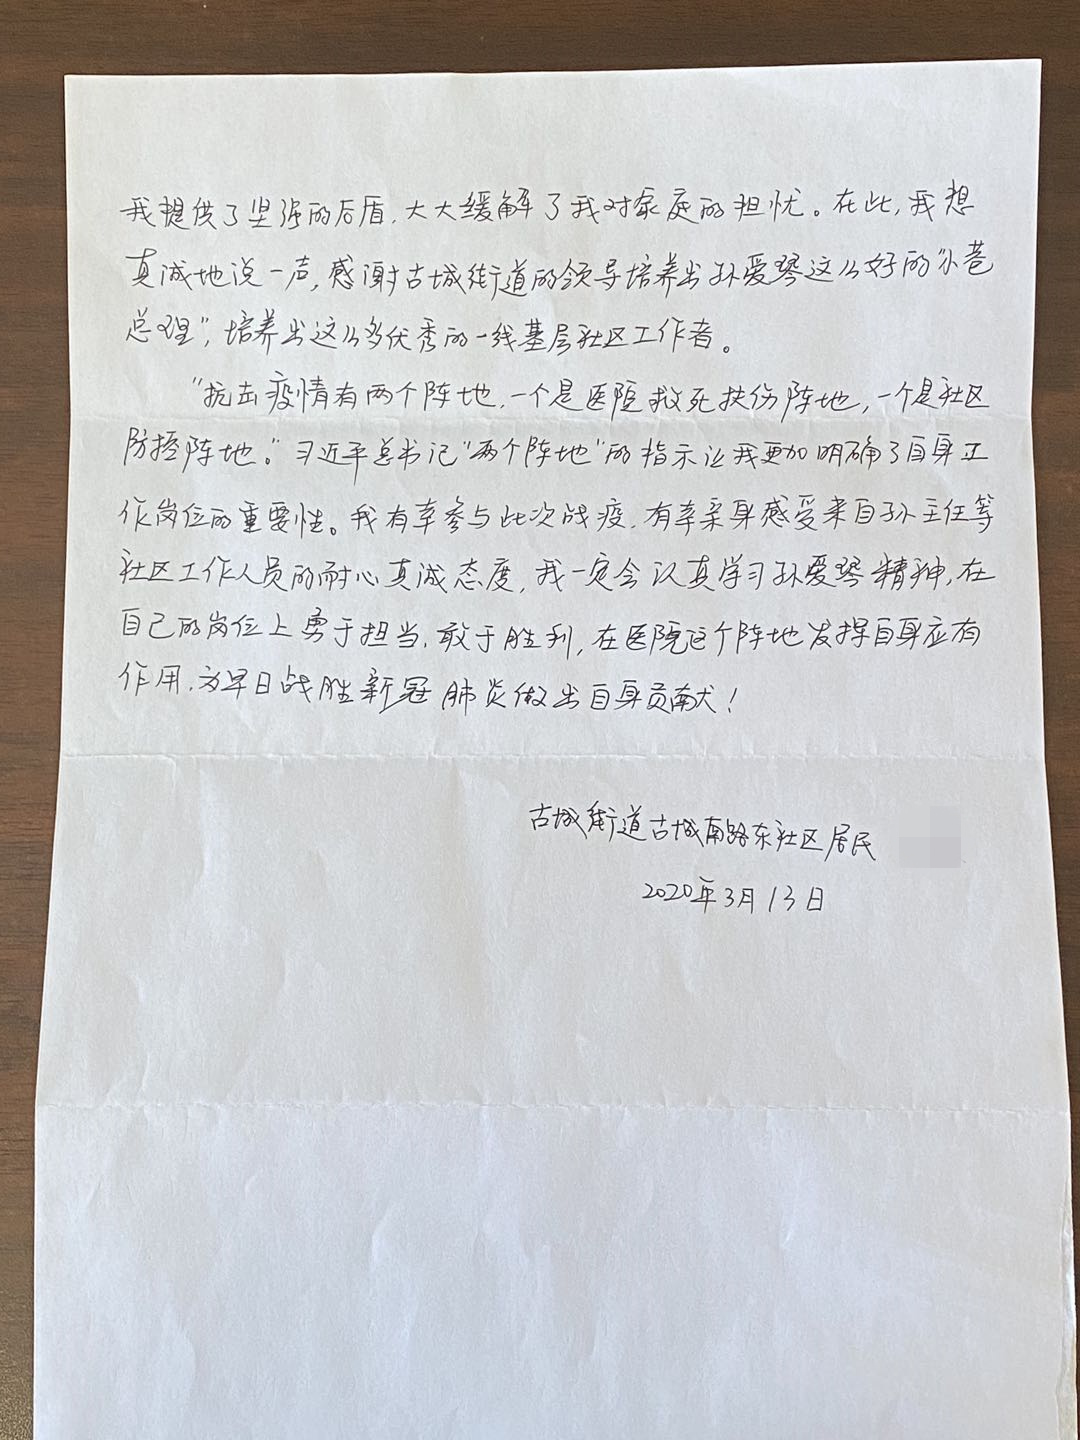 我提供了坚强的后盾，大大缓解了我对家庭的担忧。在此，我想
真诚地说一声，感谢古城街道的领导培养出孙爱琴这么好的“小巷
总理”，培养出这么多优秀的一线基层社区工作者。
“抗击疫情有两个阵地，一个是医院救死扶伤阵地，一个是社区
防控阵地。”习近平总书记“两个阵地”的指示让我更加明确了自身工
作岗位的重要性。我有幸参与此次战疫，有幸亲身感受来自孙主任等
社区工作人员的耐心真诚态度，我一定会认真学习孙爱琴精神，在
自己的岗位上勇于担当，敢于胜利，在医院这个阵地发挥自身应有
作用，为早日战胜新冠肺炎做出自身贡献！
古城街道古城南路东社区居民
2020年3月13日